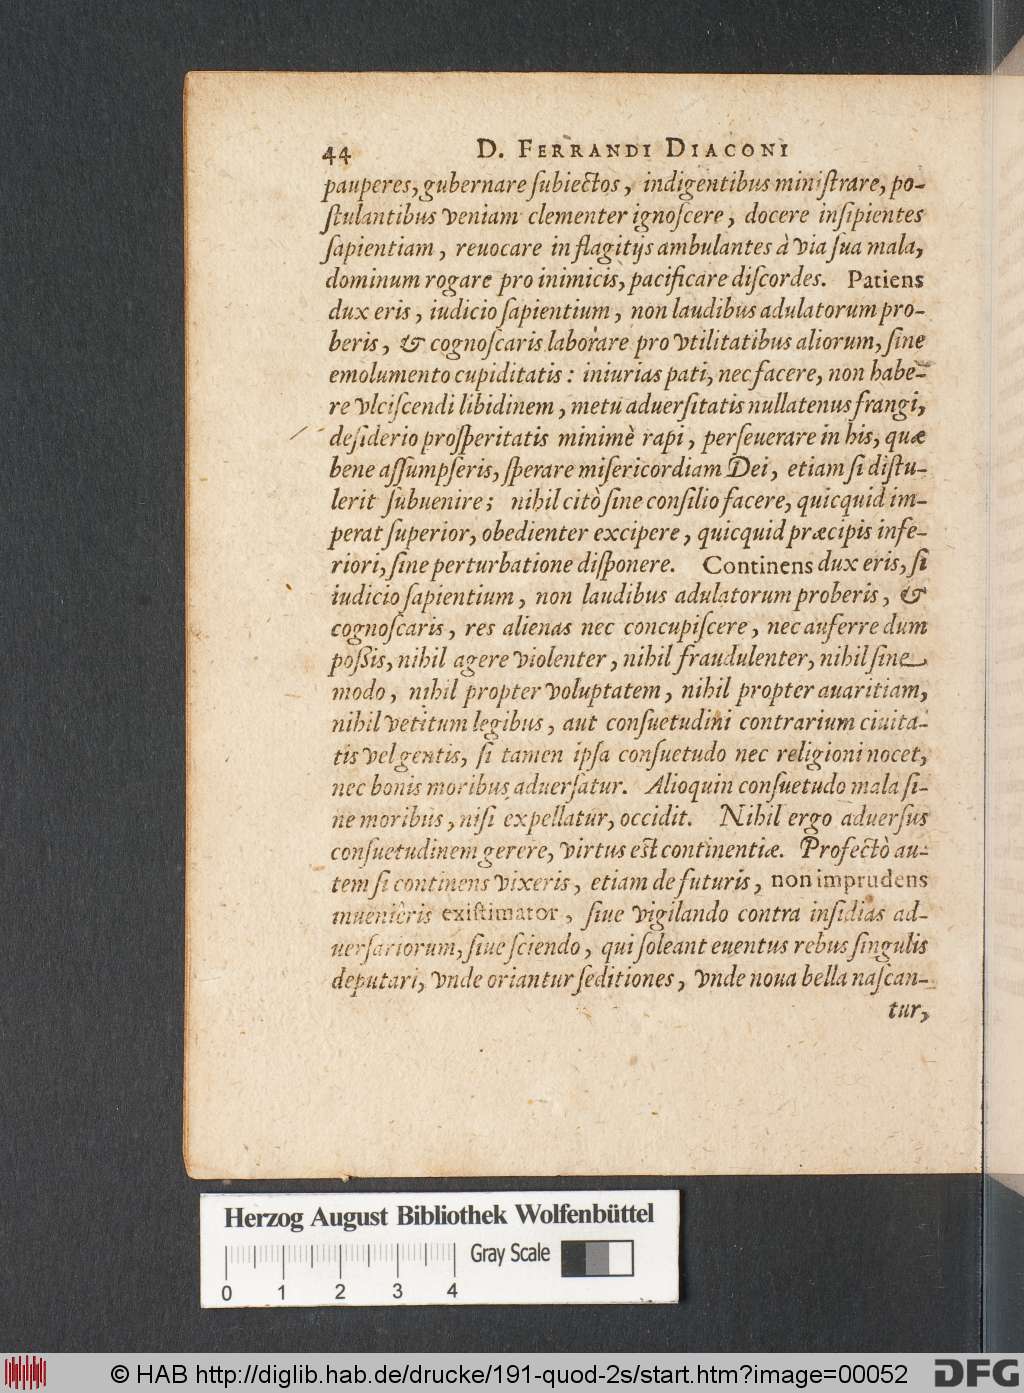 44 D. FERRANDI DIACONI
pauperes, gubernare ſubiectos, indigentibus miniſtrare, po-
ſtulantibus veniam clementer ignoſcere, docere inſipientes
ſapientiam, reuocare in flagitijs ambulantes à via ſua mala,
dominum rogare pro inimicis, pacificare diſcordes. Patiens
dux eris, iudicio ſapientium, non laudibus adulatorum pro-
beris, & cognoſcaris laborare pro vtilitatibus aliorum, ſine
emolumento cupiditatis: iniurias pati, nec facere, non habe-
re vlciſcendi libidinem, metu aduerſitatis nullatenus frangi,
deſiderio proſperitatis minimè rapi, perſeuerare in his, quæ
bene aſſumpſeris, ſperare miſericordiam Dei, etiam ſi diſtu-
lerit ſubuenire; nihil citò ſine conſilio facere, quicquid im-
perat ſuperior, obedienter excipere, quicquid præcipis infe-
riori, ſine perturbatione diſponere. Continens dux eris, ſi
iudicio ſapientium, non laudibus adulatorum proberis, &
cognoſcaris, res alienas nec concupiſcere, nec auferre dum
poßis, nihil agere violenter, nihil fraudulenter, nihil ſine
modo, nihil propter voluptatem, nihil propter auaritiam,
nihil vetitum legibus, aut conſuetudini contrarium ciuita-
tis vel gentis, ſi tamen ipſa conſuetudo nec religioni nocet,
nec bonis moribus aduerſatur. Alioquin conſuetudo mala ſi-
ne moribus, niſi expellatur, occidit. Nihil ergo aduerſus
conſuetudinem gerere, virtus eſt continentiæ. Profectò au-
tem ſi continens vixeris, etiam de futuris, non imprudens
inuenieris exiſtimator, ſiue vigilando contra inſidias ad-
uerſariorum, ſiue ſciendo, qui ſoleant euentus rebus ſingulis
deputari, vnde oriantur ſeditiones, vnde noua bella naſcan-
tur,
Herzog August Bibliothek Wolfenbüttel
Gray Scale
0 1 2 3 4
© HAB http://diglib.hab.de/drucke/191-quod-2s/start.htm?image=00052
diglib
DFG